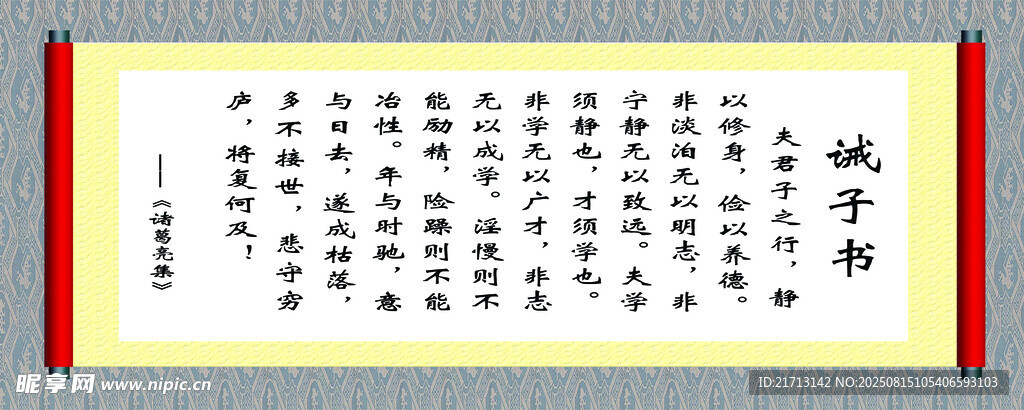 诫子书
夫君子之行，静
以修身，俭以养德。
非淡泊无以明志，非
宁静无以致远。夫学
须静也，才须学也。
非学无以广才，非志
无以成学。淫慢则不
能励精，险躁则不能
冶性。年与时驰，意
与日去，遂成枯落，
多不接世，悲守穷
庐，将复何及！
——《诸葛亮集》
昵享网 www.nipic.cn
ID:21713142 NO:20250815105406593103